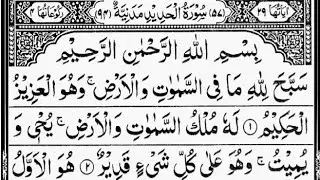 اٰیاتُهَا ۲۹ (۵۷) سُوْرَةُ الْحَدِیْدِ مَدَنِیَّةٌ (۹۴) رُكُوْعَاتُهَا ۴
بِسْمِ اللهِ الرَّحْمٰنِ الرَّحِیْمِ
سَبَّحَ لِلّٰهِ مَا فِی السَّمٰوٰتِ وَالْاَرْضِ ۚ وَهُوَ الْعَزِیْزُ
الْحَكِیْمُ ۝۱ لَهٗ مُلْكُ السَّمٰوٰتِ وَالْاَرْضِ ۚ یُحْیٖ وَ
یُمِیْتُ ۚ وَهُوَ عَلٰی كُلِّ شَیْءٍ قَدِیْرٌ ۝۲ هُوَ الْاَوَّلُ